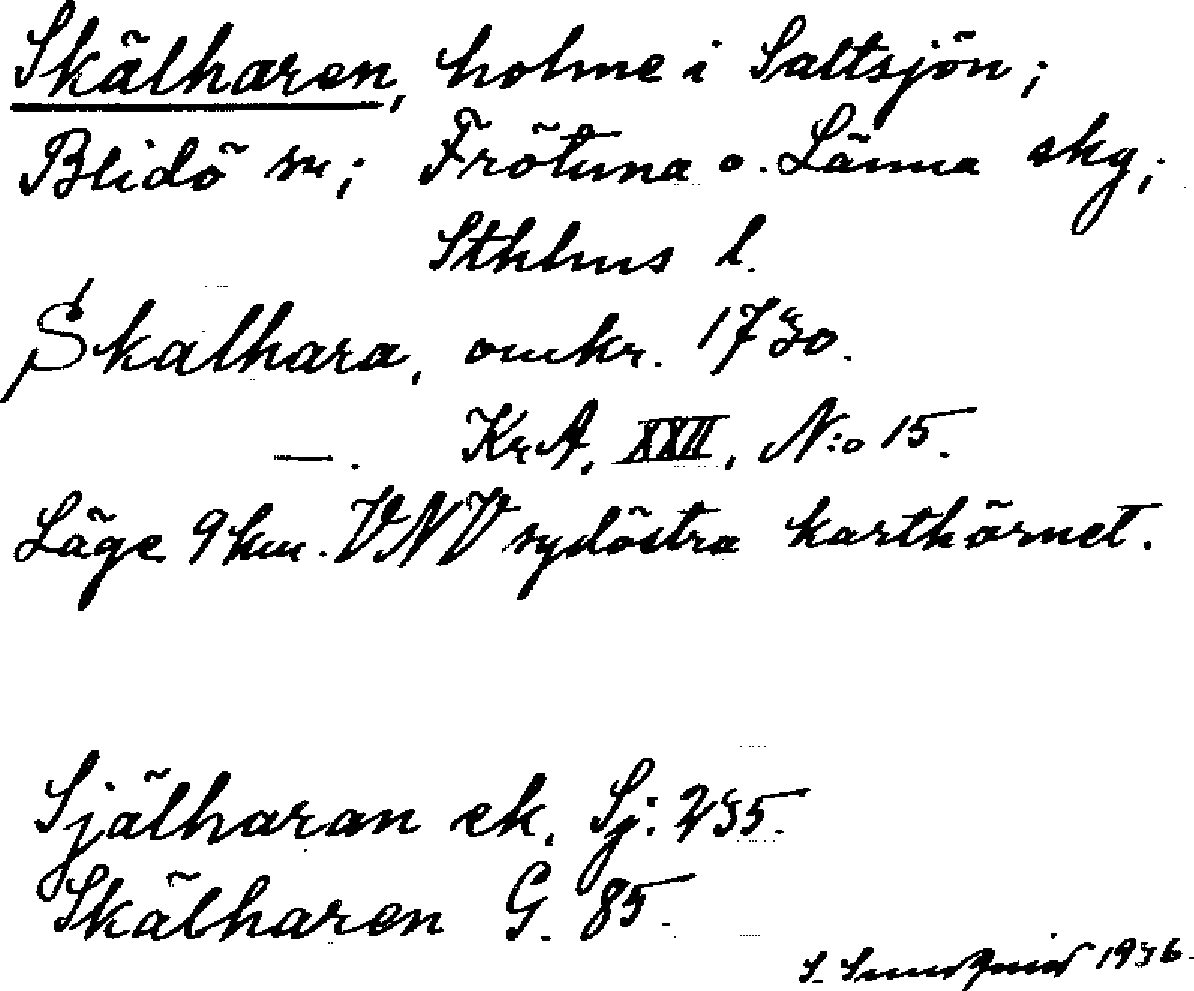 Skälharen, holme i Saltsjön;
Blidö sn; Frötuna o. Länna skg;
Sthlms l.
Skalhara, omkr. 1730.
—. KrA, XXII, N:o 15.
Läge 9 km. VNV sydöstra karthörnet.
Själharan ek. Sj: 235.
Skälharen G. 85.
S. 1936.